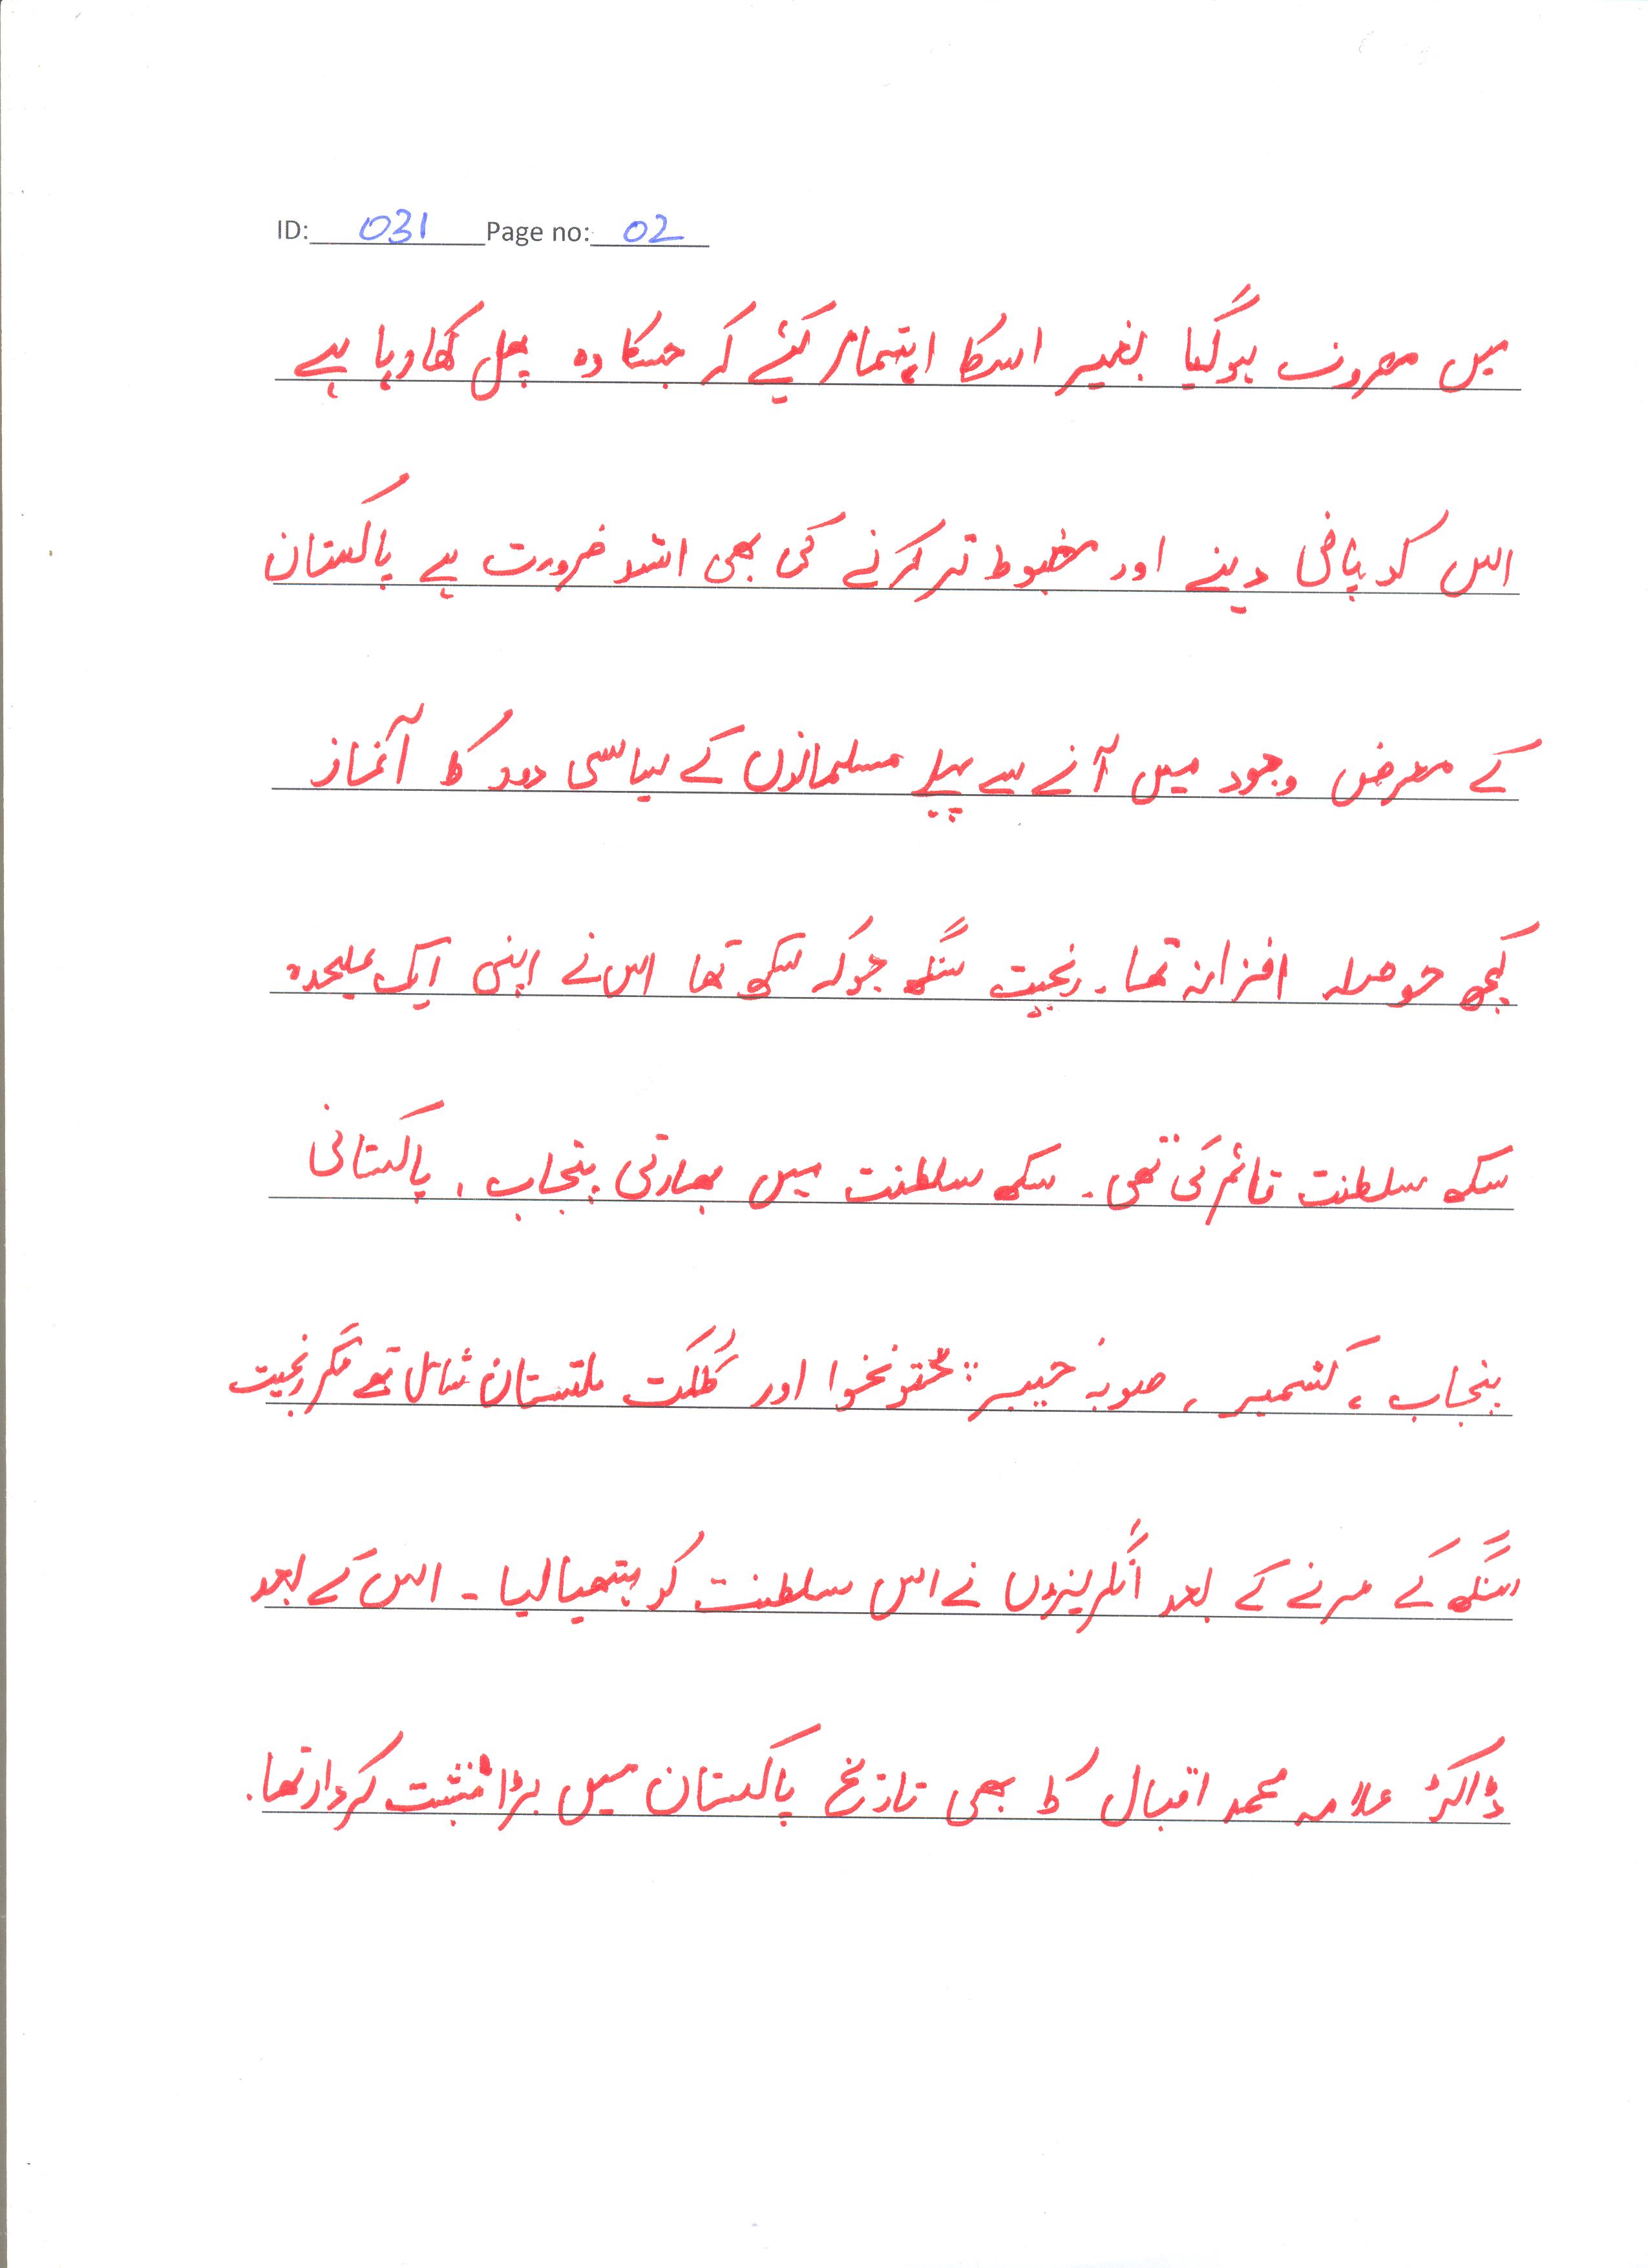 ID: 031 Page no: 02
میں مصروف ہوگیا بغیر اسکا اہتمام کئے کہ جسکا وہ پھل کھا رہا ہے
اس کو پانی دینے اور مضبوط تر کرنے کی بھی اشد ضرورت ہے پاکستان
کے معرض وجود میں آنے سے پہلے مسلمانوں کے سیاسی دور کا آغاز
کچھ حوصلہ افزا نہ تھا۔ رنجیت سنگھ جو کہ سکھ تھا اس نے اپنی ایک علیحدہ
سکھ سلطنت قائم کی تھی۔ سکھ سلطنت میں بھارتی پنجاب، پاکستانی
پنجاب، کشمیر، صوبہ خیبر پختونخوا اور گلگت بلتستان شامل تھے مگر رنجیت
سنگھ کے مرنے کے بعد انگریزوں نے اس سلطنت کو ہتھیا لیا۔ اس کے بعد
ڈاکٹر علامہ محمد اقبال کا بھی تاریخ پاکستان میں بڑا مثبت کردار تھا۔